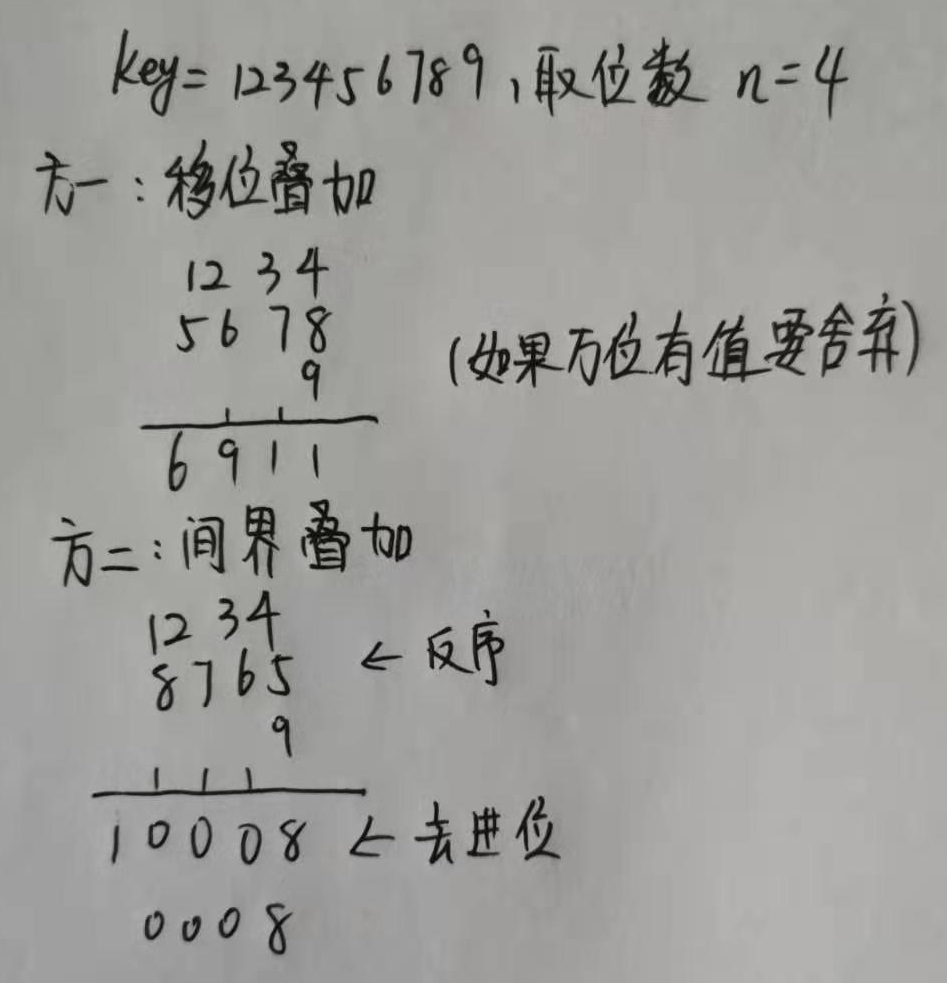 key=123456789,取位数 n=4
方一:移位叠加
1234
5678
(如果万位有值要舍弃)
9
6911
方二:间界叠加
1234
8765 ← 反序
9
1 1 1
10008 ← 去进位
0008